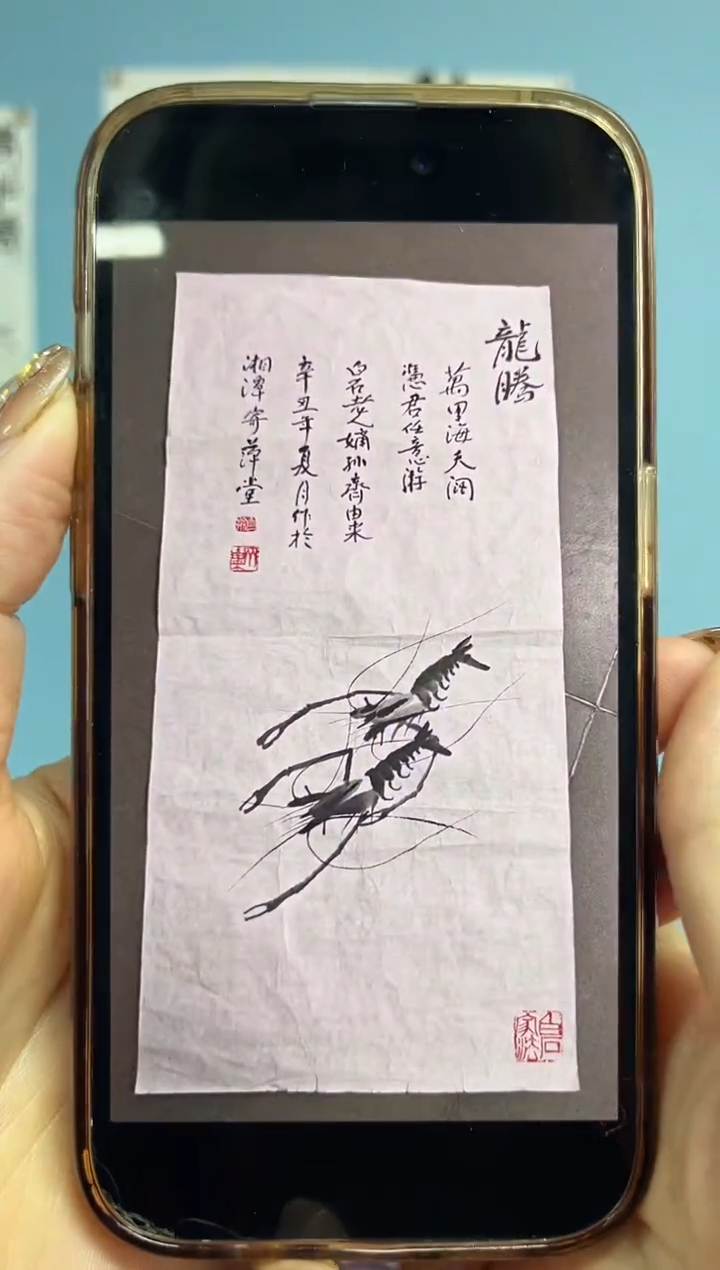 龍騰
萬里海天闊
憑君任意游
白石老人嫡孫齊由来
辛丑年夏月作於
湘潭寄萍堂
白石家法